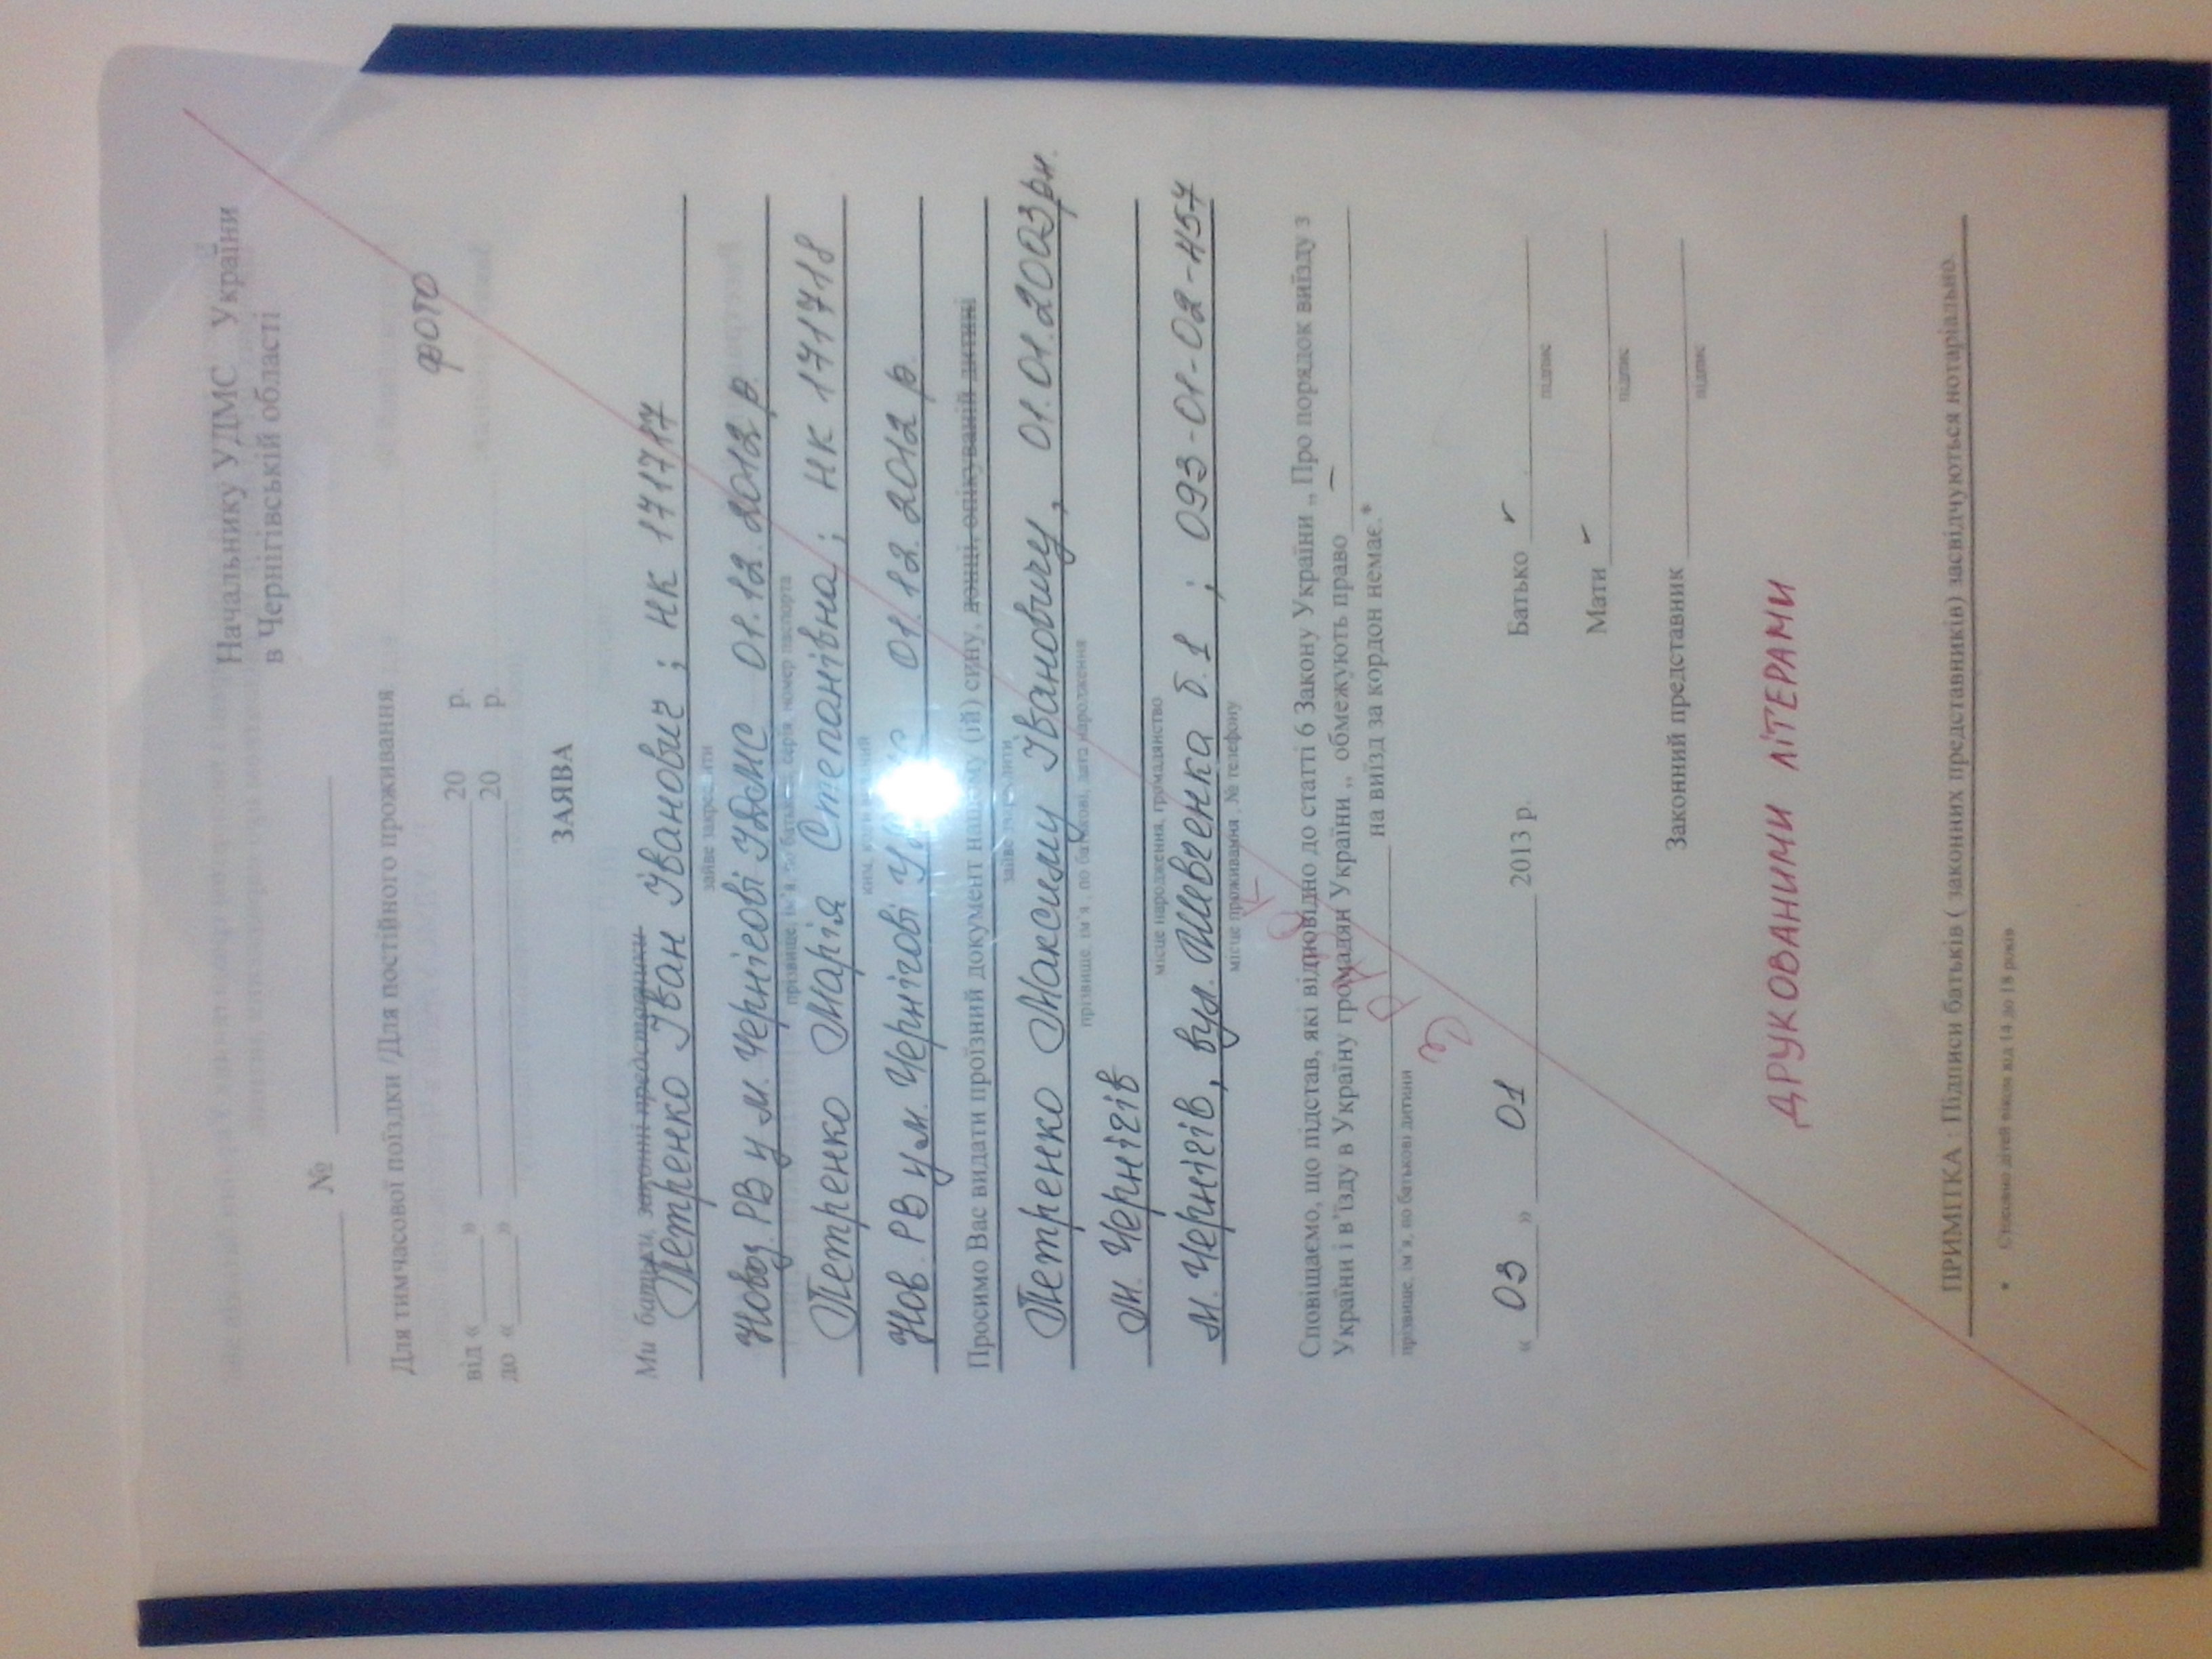 Начальнику УДМС України
в Чернігівській області
№
Для тимчасової поїздки /Для постійного проживання
фото
від «____» 20 р.
до «____» 20 р.
ЗАЯВА
Ми батьки, законні представники
Петренко Іван Іванович ; НК 171717
зайве закреслити
Новоз. РВ у м. Чернігові УДМС 01.12.2012 р.
прізвище, ім'я, по батькові, серія, номер паспорта
Петренко Марія Степанівна ; НК 171718
ким, коли виданий
Нов. РВ у м. Чернігові 01.12.2012 р.
Просимо Вас видати проїзний документ нашому (ій) сину, доньці, опікуваній дитині
зайве закреслити
Петренко Максиму Івановичу, 01.01.2003 рн.
прізвище, ім'я, по батькові, дата народження
м. Чернігів
місце народження, громадянство
м. Чернігів, вул. Шевченка б.1 ; 093-01-02-457
місце проживання , № телефону
Сповіщаємо, що підстав, які відповідно до статті 6 Закону України „ Про порядок виїзду з
України і в'їзду в Україну громадян України „ обмежують право –
на виїзд за кордон немає.*
прізвище, ім'я, по батькові дитини
ЗРАЗОК
« 03 » 01 2013 р.
Батько
підпис
Мати
підпис
Законний представник
підпис
ДРУКОВАНИМИ ЛІТЕРАМИ
ПРИМІТКА : Підписи батьків ( законних представників) засвідчуються нотаріально.
* Стосовно дітей віком від 14 до 18 років